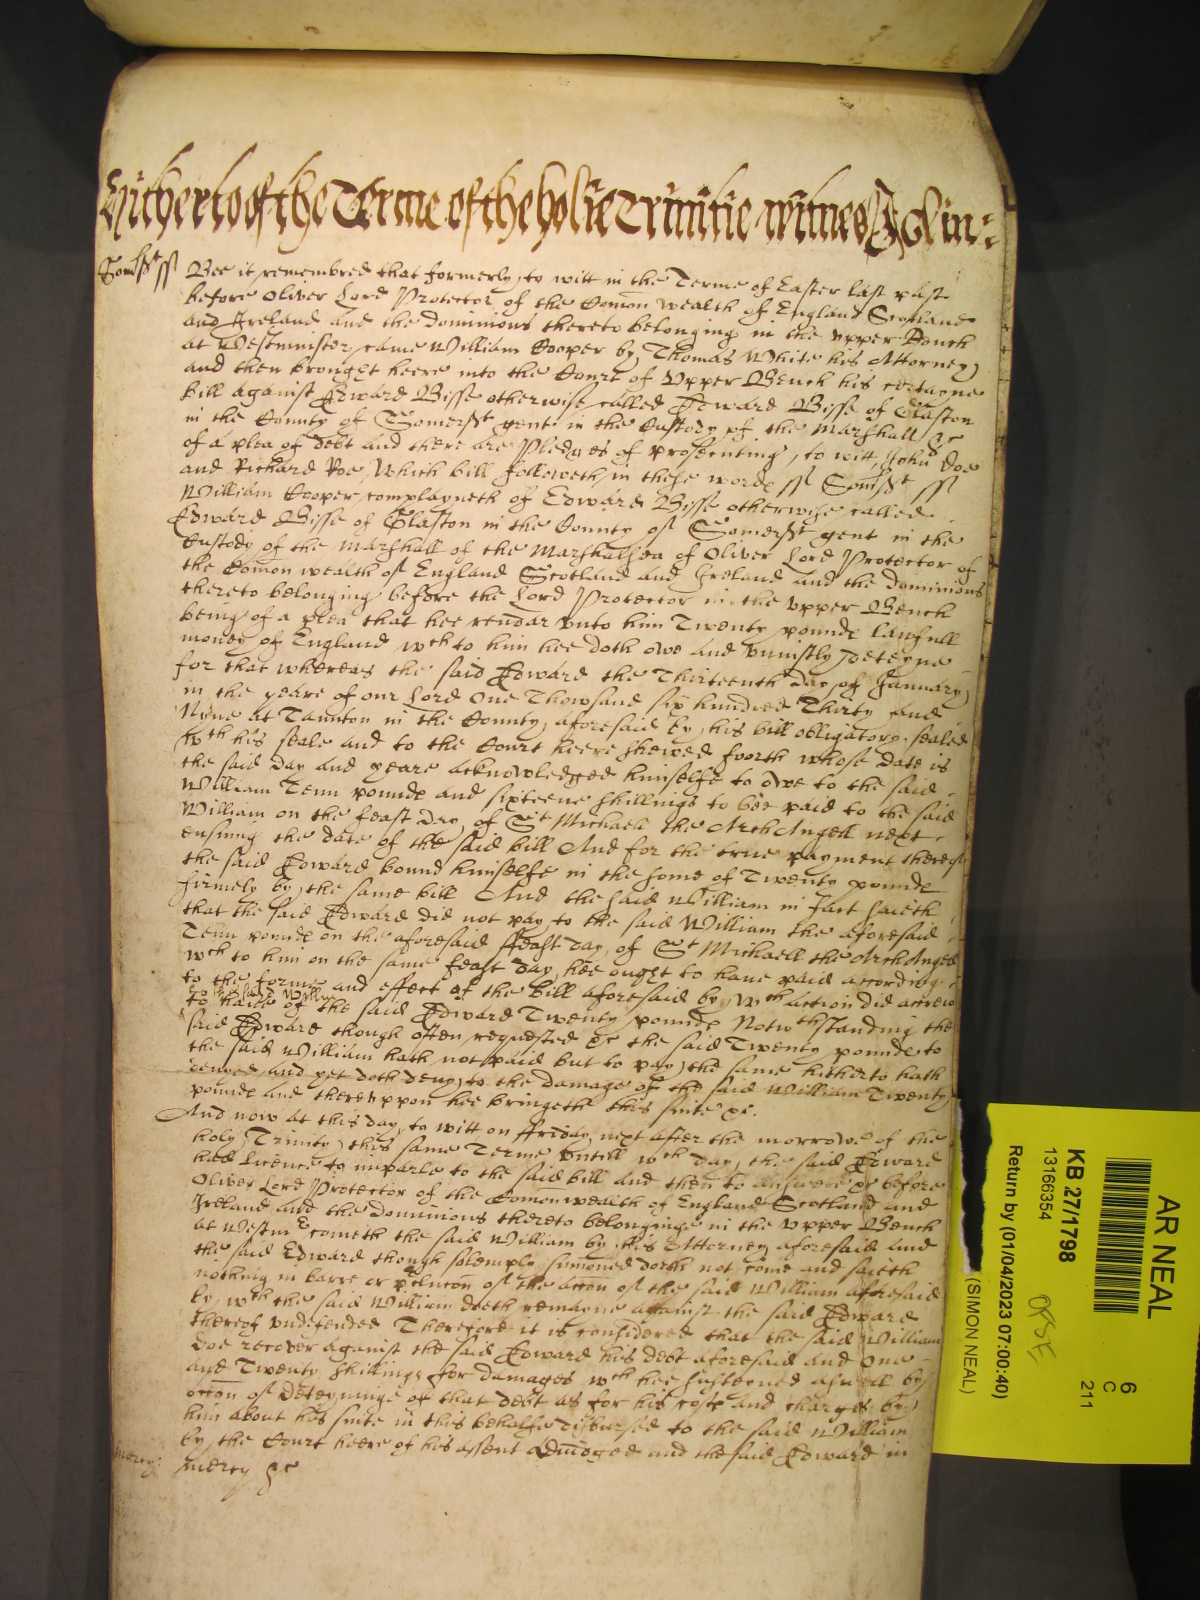 Hitherto of the Terme of the holie Trinitie witnes J Glin:
Somsst ss Bee it remembred that formerly to witt in the Terme of Easter last past
before Oliver Lord Protector of the Comon wealth of England Scotland
and Ireland and the dominions thereto belonging in the upper Bench
at Westminster came William Cooper by Thomas White his Attorney
and then brought heere into the Court of Upper Bench his certayne
bill against Edward Bisse otherwise called Edward Bisse of Glaston
in the County of Somersst gent in the Custody of the Marshall &c
of a plea of debt and there are Pledges of prosecuting, to witt, John Doe
and Richard Roe, Which bill followeth in these words ss Somsst ss
William Cooper complayneth of Edward Bisse otherwise called
Edward Bisse of Glaston in the County of Somersst gent in the
Custody of the Marshall of the Marshalsea of Oliver Lord Protector of
the Comon wealth of England Scotland and Ireland and the dominions
thereto belonging before the Lord Protector in the upper Bench
being of a plea that hee rendar unto him Twenty pounds lawfull
money of England wch to him hee doth owe and uniustly deteyne
for that whereas the said Edward the Thirteenth day of January
in the yeare of our Lord One Thowsand six hundred Thirty and
Nyne at Taunton in the County aforesaid by his bill obligatory sealed
wth his seale and to the Court heere shewed foorth whose date is
the said day and yeare acknowledged himselfe to owe to the said
William Tenn pounds and sixteene shillings to bee paid to the said
William on the feast day of St Michaell the ArchAngell next
ensuing the date of the said bill And for the true payment thereof
the said Edward bound himselfe in the some of Twenty pounds
firmely by the same bill And the said William in fact saieth
that the said Edward did not pay to the said William the aforesaid
Tenn pounds on the aforesaid ffeast day of St Michaell the ArchAngell
wch to him on the same feast day hee ought to have paid according
to the forme and effect of the Bill aforesaid by wch action did accrew
to the said Willm
to have of the said Edward Twenty pounds Notwthstanding the
said Edward though often requested &c the said Twenty pounds to
the said William hath not paid but to pay the same hitherto hath
denyed and yet doth deny to the damage of the said William Twenty
pounds and thereuppon hee bringeth this suite &c.
And now at this day to witt on ffriday next after the morrowe of the
holy Trinity this same Terme untill wch day the said Edward
had Licence to imparle to the said bill and then to answere &c before
Oliver Lord Protector of the Comonwealth of England Scotland and
Ireland and the dominions thereto belonginge in the upper Bench
at Westmr cometh the said William by his Attorney aforesaid And
the said Edward though solemply sumoned doeth not come and saieth
nothing in barre or pclucon of the accon of the said William aforesaid
by wch the said William doeth remayne against the said Edward
thereof undefended Therefore it is considered that the said William
doe recover against the said Edward his debt aforesaid and One
and Twenty shillings for damages wch hee susteened aswell by
occon of Deteyninge of that debt as for his costs and charges by
him about his suite in this behalfe disbursed to the said William
by the Court heere of his assent Adiudged and the said Edward in
mercy &c
mercy:
AR NEAL
6
C
211
KB 27/1798
13166354
Return by (01/04/2023 07:00:40)
(SIMON NEAL)